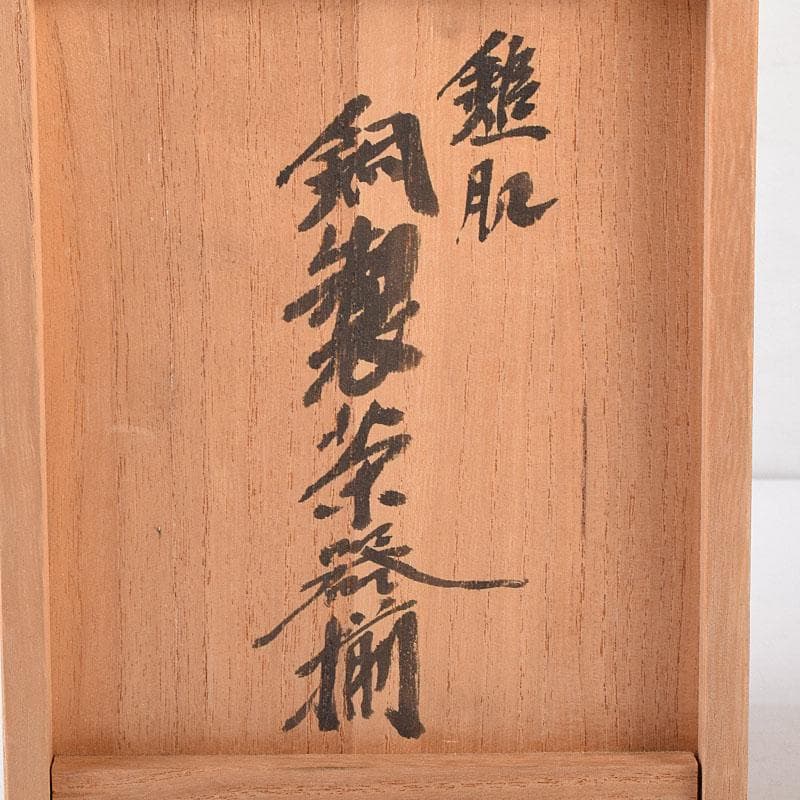 鎚肌
銅製茶器揃